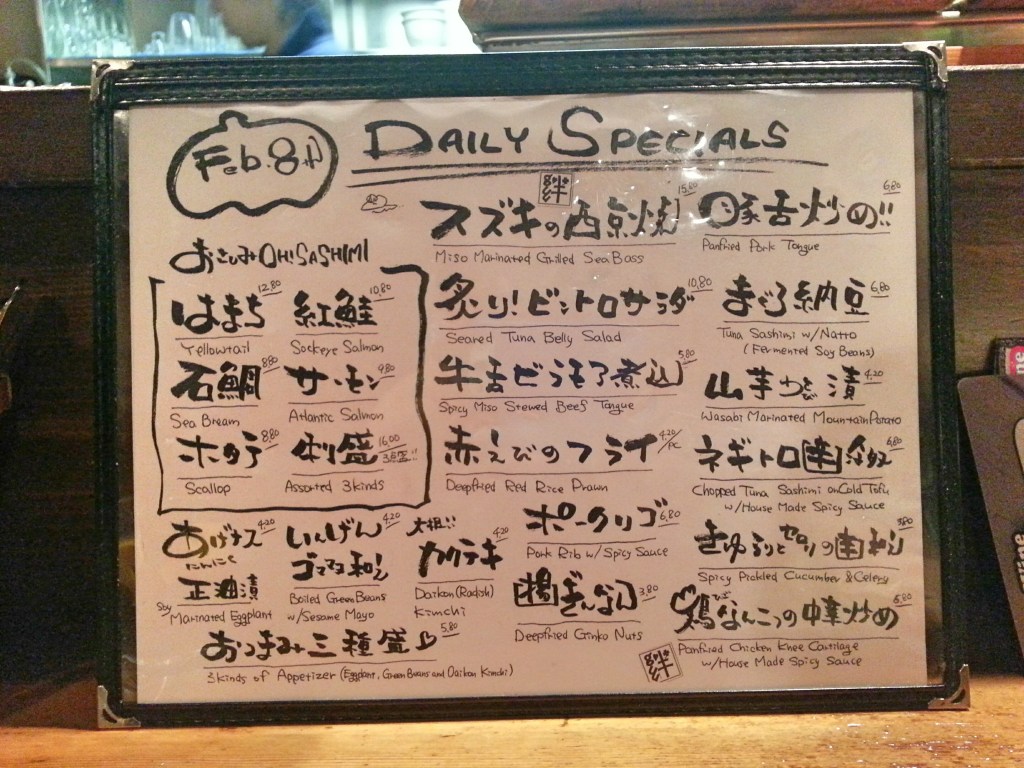 Feb. 8th
DAILY SPECIALS
絆
おさしみ OH! SASHIMI
はまち 12.80
Yellowtail
紅鮭 10.80
Sockeye Salmon
石鯛 8.80
Sea Bream
サーモン 9.80
Atlantic Salmon
ホタテ 8.80
Scallop
刺盛 16.00
Assorted 3kinds
あげナス 4.20
にんにく
正油漬
Soy Marinated Eggplant
いんげん 4.20
ゴママヨ和え
Boiled Green Beans
w/Sesame Mayo
大根!!
カクテキ 4.20
Daikon (Radish)
Kimchi
おつまみ三種盛 5.80
3kinds of Appetizer (Eggplant, Green Beans and Daikon Kimchi)
スズキの西京焼 15.80
Miso Marinated Grilled Sea Bass
炙り!ビントロサラダ 10.80
Seared Tuna Belly Salad
牛舌どうもろ煮込 5.80
Spicy Miso Stewed Beef Tongue
赤えびのフライ 4.20/pc
Deepfried Red Rice Prawn
ポークリブ 6.80
Pork Rib w/ Spicy Sauce
揚ぎんなん 3.80
Deepfried Ginko Nuts
豚舌炒め!! 6.80
Panfried Pork Tongue
まぐろ納豆 6.80
Tuna Sashimi w/Natto
(Fermented Soy Beans)
山芋わさび漬 4.20
Wasabi Marinated Mountain Potato
ネギトロ辛奴 6.80
Chopped Tuna Sashimi on Cold Tofu
w/House Made Spicy Sauce
きゅうりとセロリの辛和え 3.80
Spicy Pickled Cucumber & Celery
鶏ひざなんこつの中華炒め 5.80
Panfried Chicken Knee Cartilage
w/House Made Spicy Sauce
絆